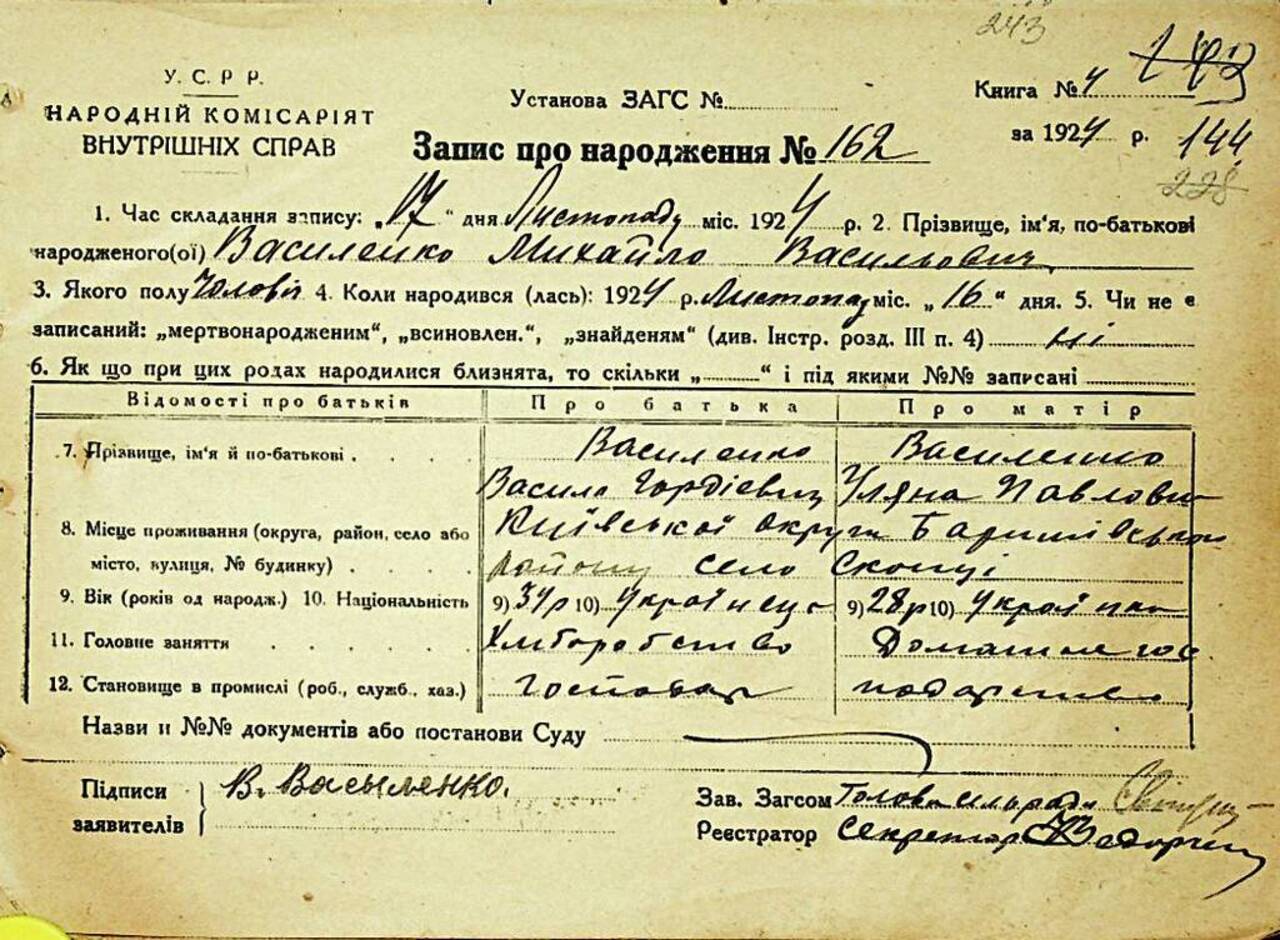 243
У. С. Р Р.
НАРОДНІЙ КОМІСАРІЯТ
ВНУТРІШНІХ СПРАВ
Установа ЗАГС №
Книга № 4 143
за 1924 р. 144
228
Запис про народження № 162
1. Час складання запису: „17“ дня Листопаду міс. 1924 р. 2. Прізвище, ім'я, по-батькові
народженого(ої) Василенко Михайло Васильович
3. Якого полу Чоловіч 4. Коли народився (лась): 1924 р. Листопад міс. „16“ дня. 5. Чи не є
записаний: „мертвонародженим“, „всиновлен.“, „знайденям“ (див. Інстр. розд. III п. 4) ні
6. Як що при цих родах народилися близнята, то скільки „ “ і під якими №№ записані
Відомості про батьків Про батька Про матір
7. Прізвище, ім'я й по-батькові . . . . Василенко Василенко
Василь Гордієвич Уляна Павловн
8. Місце проживання (округа, район, село або Київської округи Баришівськои
місто, вулиця, № будинку) . . . . району село Скопці
9. Вік (років од народж.) 10. Національність 9) 34р 10) Українець 9) 28р 10) Українка
11. Головне заняття . . . . . . Хліборобство Домашнє гос
12. Становище в промислі (роб., служб., хаз.) господар подарство
Назви и №№ документів або постанови Суду
Підписи В. Васыленко.
заявителів
Зав. Загсом Голова сільради
Реєстратор Секретар